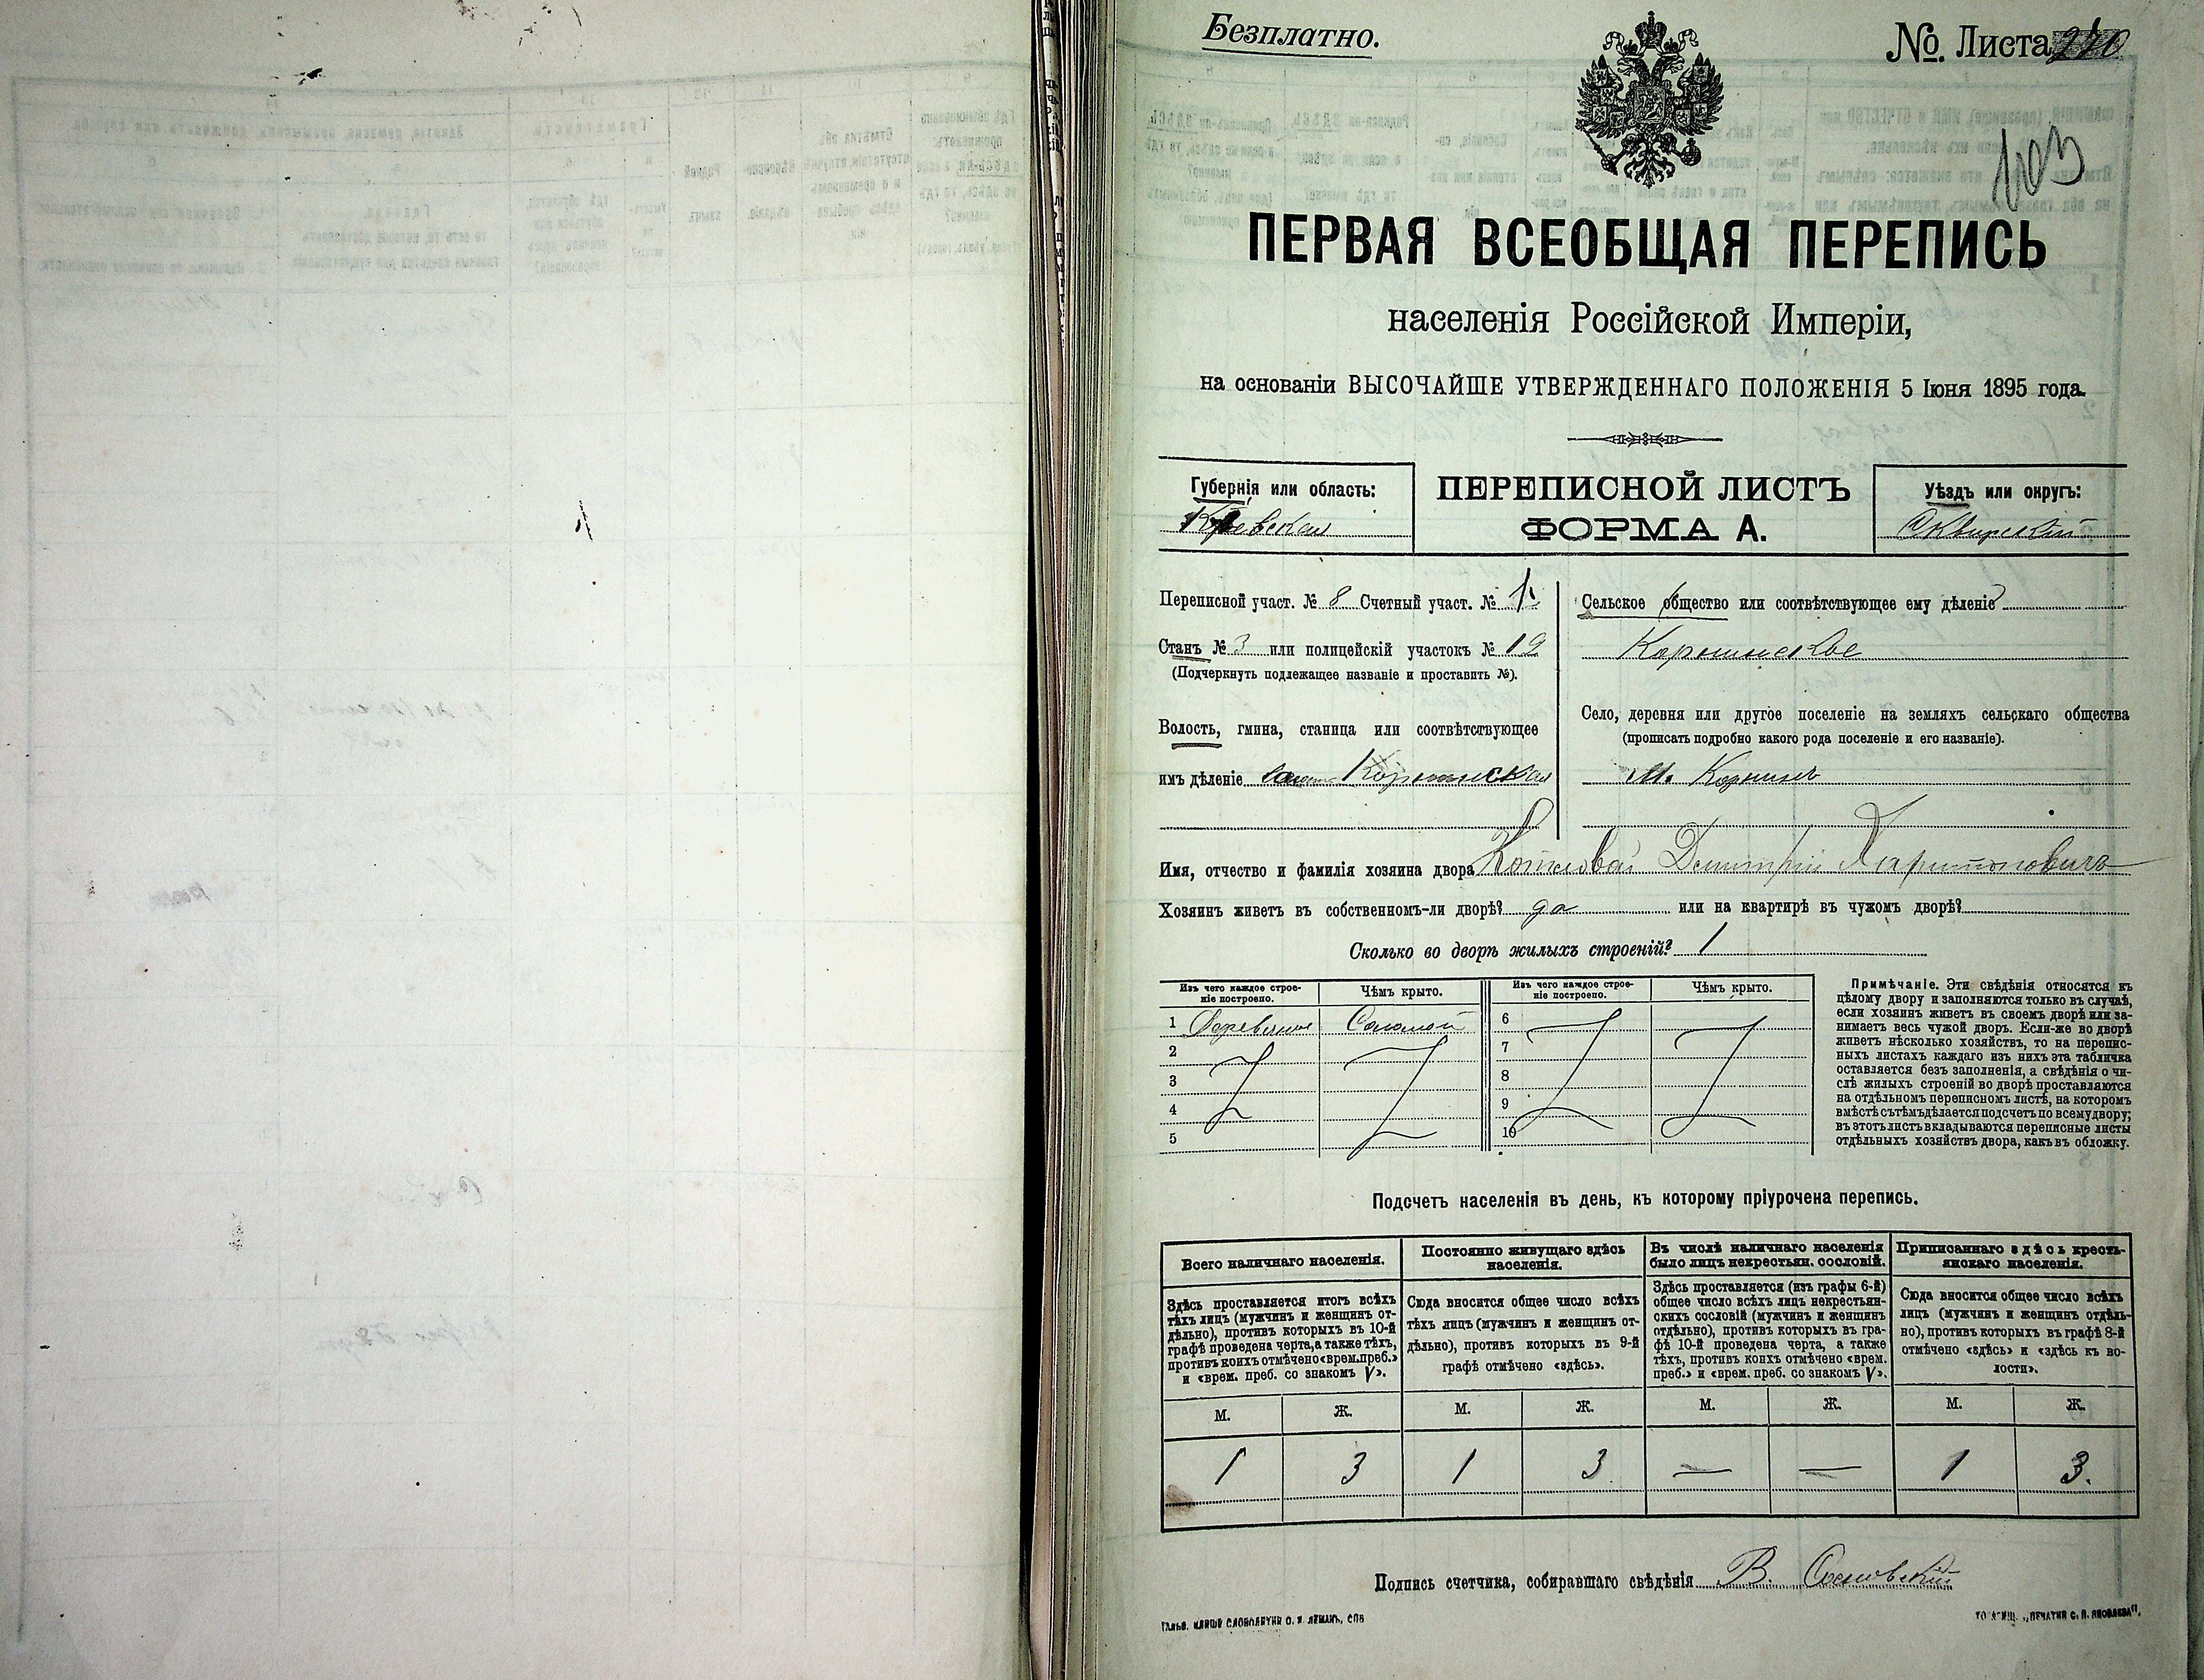 Безплатно.
№ Листа 240
103
ПЕРВАЯ ВСЕОБЩАЯ ПЕРЕПИСЬ
населенія Россійской Имперіи,
на основаніи ВЫСОЧАЙШЕ УТВЕРЖДЕННАГО ПОЛОЖЕНІЯ 5 Іюня 1895 года.
Губернія или область:
Кіевская
ПЕРЕПИСНОЙ ЛИСТЪ
ФОРМА А.
Уѣздъ или округъ:
Сквирскій
Переписной участ. № 8 Счетный участ. №
Станъ № 3 или полицейскій участокъ № 12
(Подчеркнуть подлежащее названіе и проставить №).
Волость, гмина, станица или соотвѣтствующее
имъ дѣленіе Корнинская
Сельское общество или соотвѣтствующее ему дѣленіе
Корнинское
Село, деревня или другое поселеніе на земляхъ сельскаго общества
(прописать подробно какого рода поселеніе и его названіе).
М. Корнинъ
Имя, отчество и фамилія хозяина двора Дмитрій Харитоновичъ
Хозяинъ живетъ въ собственномъ-ли дворѣ? да или на квартирѣ въ чужомъ дворѣ?
Сколько во дворѣ жилыхъ строеній? 1
Изъ чего каждое строе-
ніе построено.
Чѣмъ крыто.
Изъ чего каждое строе-
ніе построено.
Чѣмъ крыто.
1 Деревянное Соломой
2
3
4
5
6
7
8
9
10
Примѣчаніе. Эти свѣдѣнія относятся къ
цѣлому двору и заполняются только въ случаѣ,
если хозяинъ живетъ въ своемъ дворѣ или за-
нимаетъ весь чужой дворъ. Если-же во дворѣ
живетъ нѣсколько хозяйствъ, то на перепис-
ныхъ листахъ каждаго изъ нихъ эта табличка
оставляется безъ заполненія, а свѣдѣнія о чи-
слѣ жилыхъ строеній во дворѣ проставляются
на отдѣльномъ переписномъ листѣ, на которомъ
вмѣстѣ съ тѣмъ дѣлается подсчетъ по всему двору;
въ этотъ листъ вкладываются переписные листы
отдѣльныхъ хозяйствъ двора, какъ въ обложку.
Подсчетъ населенія въ день, къ которому пріурочена перепись.
Всего наличнаго населенія.
Здѣсь проставляется итогъ всѣхъ
тѣхъ лицъ (мужчинъ и женщинъ от-
дѣльно), противъ которыхъ въ 10-й
графѣ проведена черта, а также тѣхъ,
противъ коихъ отмѣчено «врем. преб.»
и «врем. преб. со знакомъ V».
Постоянно живущаго здѣсь
населенія.
Сюда вносится общее число всѣхъ
тѣхъ лицъ (мужчинъ и женщинъ от-
дѣльно), противъ которыхъ въ 9-й
графѣ отмѣчено «здѣсь».
Въ числѣ наличнаго населенія
было лицъ некрестьян. сословій.
Здѣсь проставляется (изъ графы 6-й)
общее число всѣхъ лицъ некрестьян-
скихъ сословій (мужчинъ и женщинъ
отдѣльно), противъ которыхъ въ гра-
фѣ 10-й проведена черта, а также
тѣхъ, противъ коихъ отмѣчено «врем.
преб.» и «врем. преб. со знакомъ V».
Приписаннаго здѣсь кресть-
янскаго населенія.
Сюда вносится общее число всѣхъ
лицъ (мужчинъ и женщинъ отдѣль-
но), противъ которыхъ въ графѣ 8-й
отмѣчено «здѣсь» и «здѣсь къ во-
лости».
М. Ж. М. Ж. М. Ж. М. Ж.
1 3 1 3 — — 1 3.
Подпись счетчика, собиравшаго свѣдѣнія В. Сосновскій
КЛИШЕ СЛОВОЛИТНИ О. И. ЛЕМАНЪ, СПБ
„ПЕЧАТНЯ С. П. ЯКОВЛЕВА".